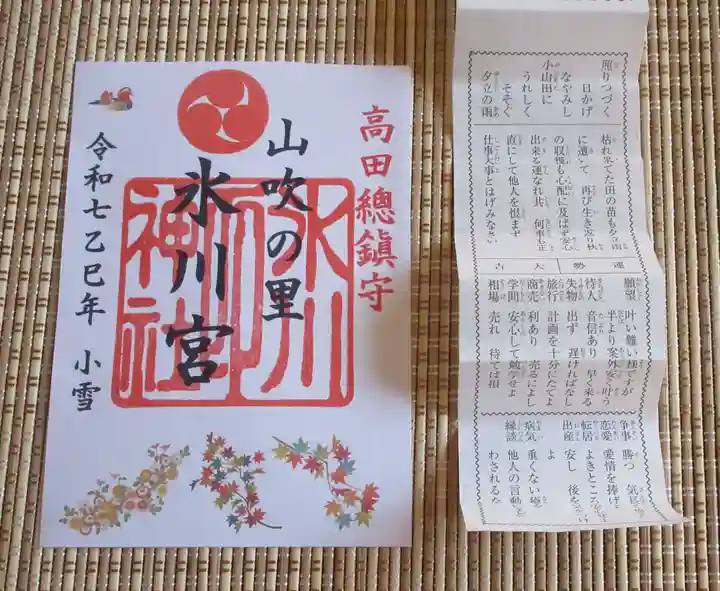 高田總鎮守
山吹の里
氷川宮
氷川神社
令和七乙巳年 小雪
照りつづく
日かげ
なやみし
小山田に
うれしく
そそぐ
夕立の雨
枯れ果てた田の苗も夕立の雨
に遭いて 再び生き返り秋
の収穫も心配に及ばず安心
出来る運なれ共 何事も正
直にして他人を恨まず
仕事大事とはげみなさい
運勢 大吉
願望 叶い難い様ですが
半より案外安く叶う
待人 音信あり 早く来る
失物 出ず 遅ければなし
旅行 計画を十分にたてよ
商売 利あり 売るによし
学問 安心して勉学せよ
相場 売れ 待てば損
争事 勝つ
恋愛 愛情を捧げ
転居 よきところ
出産 安し
よ
病気 重くない
縁談 他人の言動
わされるな